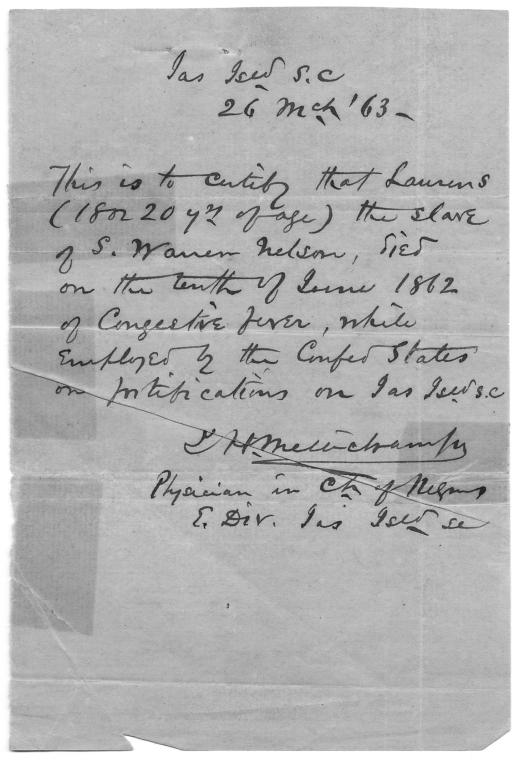 Jas Isld S.C
26 Mch '63 -
This is to certify that Laurens
(18 or 20 yrs of age) the slave
of S. Warren Nelson, died
on the tenth of June 1862
of Congestive fever, while
Employed by the Confed States
on fortifications on Jas Isld S.C
Mellichamp
Physician in Ch of Negros
E. Div. Jas Isld SC